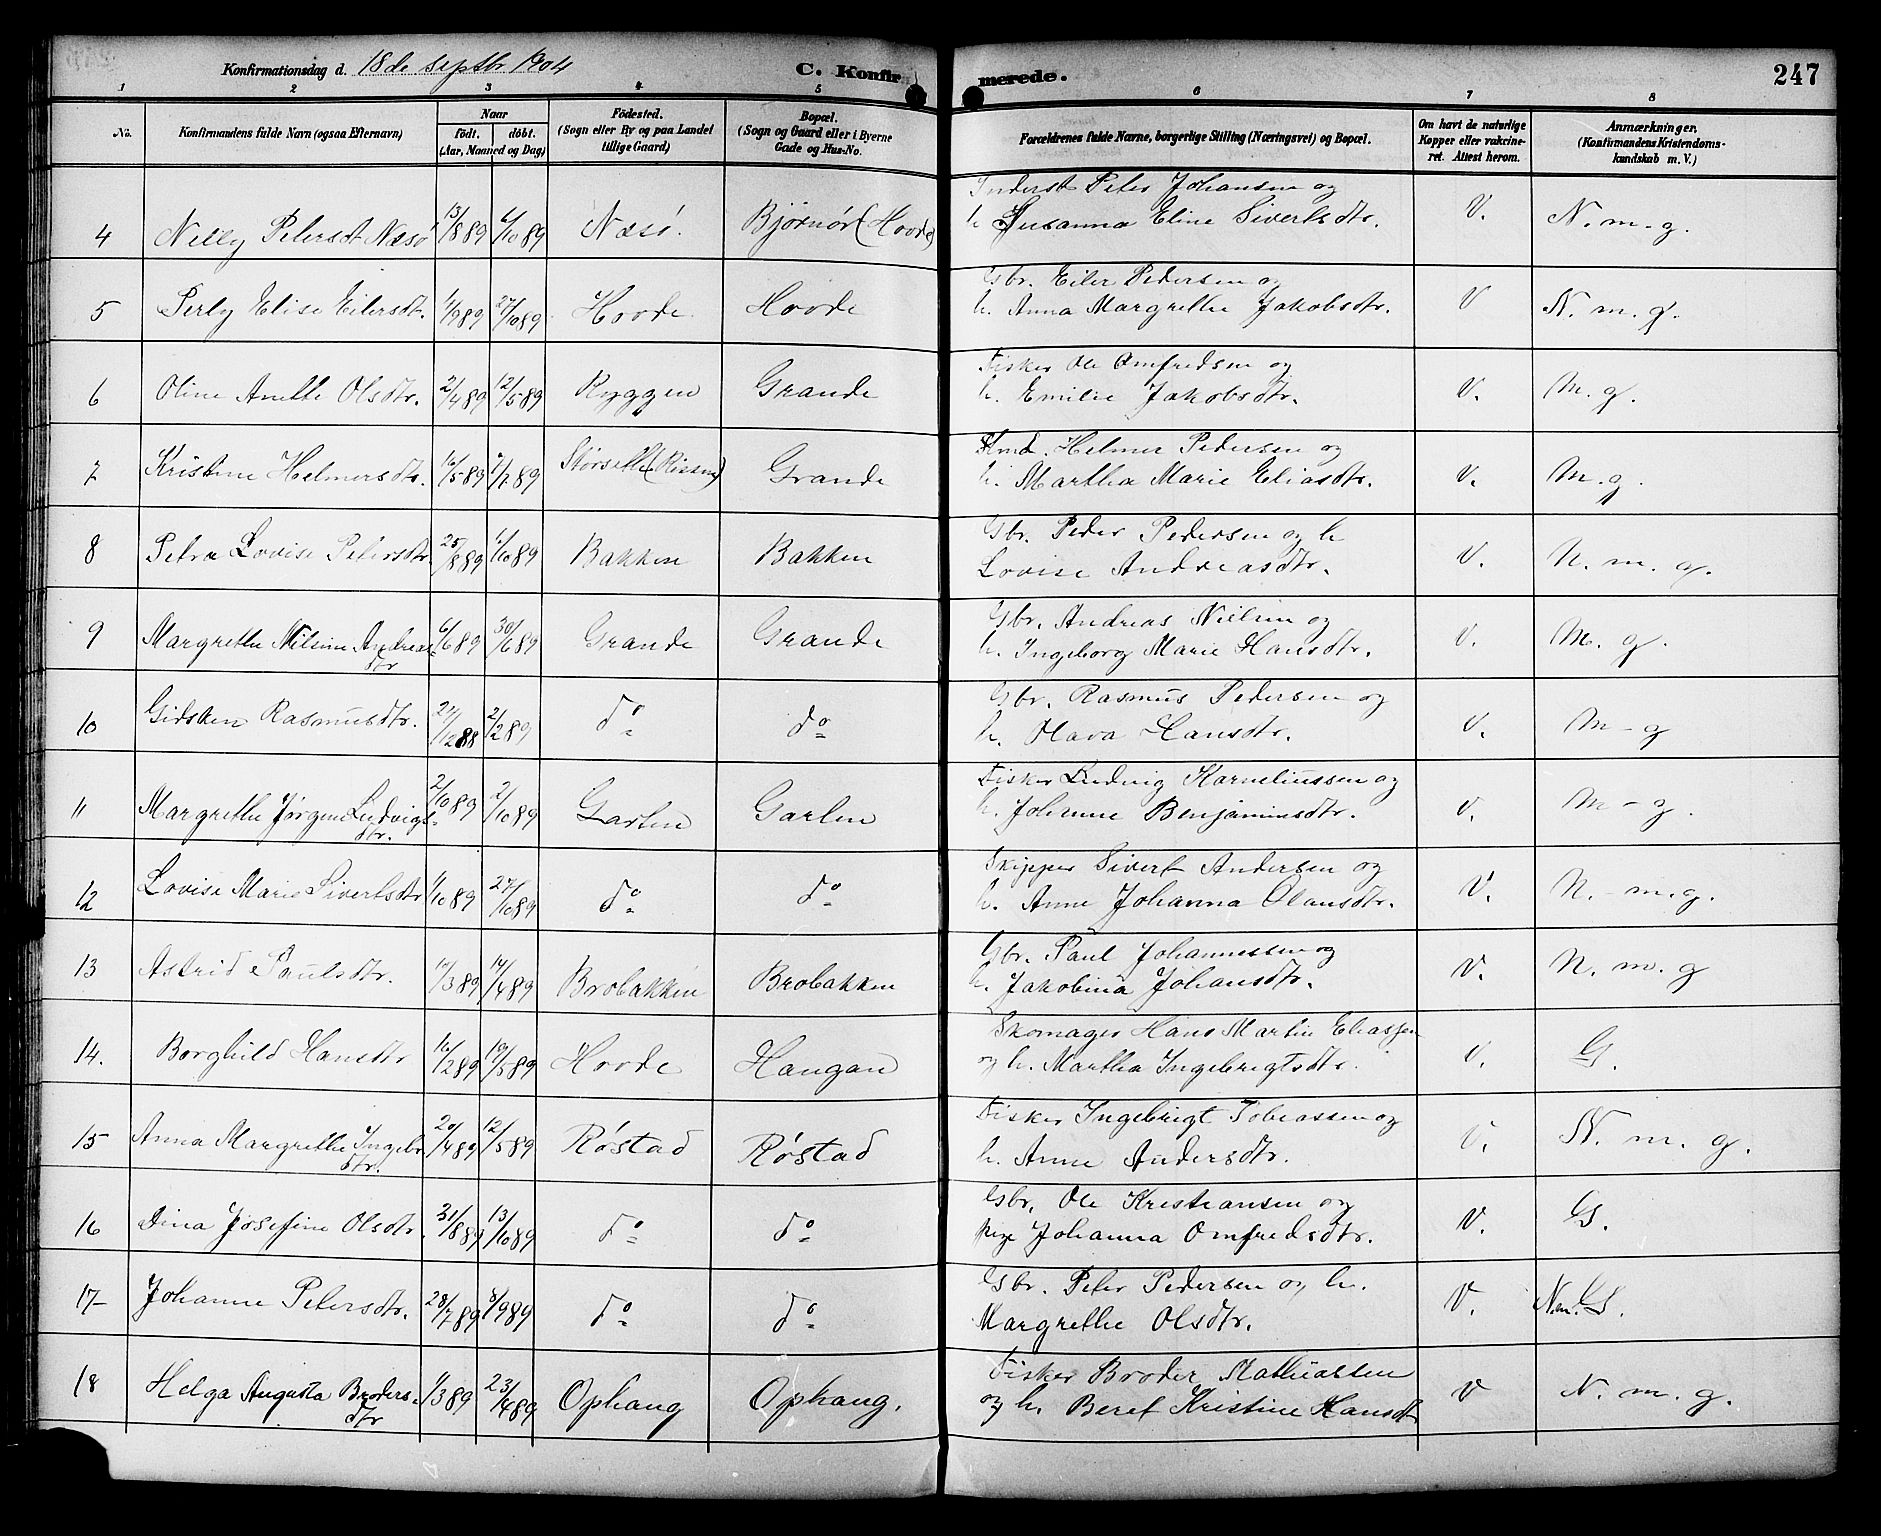 Konfirmationsdag d. 18de septbr 1904
C. Konfirmerede.
247
1 2 3 4 5 6 7 8
No.
Konfirmandens fulde Navn (ogsaa Efternavn)
Naar
födt. döbt.
(Aar, Maaned og Dag)
Födested.
(Sogn eller By og paa Landet
tillige Gaard)
Bopæl.
(Sogn og Gaard eller i Byerne
Gade og Hus-No.
Forældrenes fulde Navne, borgerlige Stilling (Næringsvei) og Bopæl.
Om havt de naturlige
Kopper eller vakcine-
ret. Attest herom.
Anmærkninger.
(Konfirmandens Kristendoms-
kundskab m. V.)
Inderst Peter Johansen og
4 Nelly Petersdt Næsö 13/8 89 6/10 89 Næsö. Bjørnør (Hovde) h Susanna Eline Sivertsdtr. V. N. m. g.
Gbr. Eiler Pedersen og
5 Perly Elise Eilersdtr. /9 89 27/10 89 Hovde Hovde h. Anna Margrethe Jakobsdtr. V N. m. g.
Fisker Ole Omfredsen og
6 Oline Anette Olsdtr. 2/4 89 12/5 89 Ryggen Grande h. Emilie Jakobsdtr. V. M. g.
Helmer Pedersen og
7 Kristine Helmersdtr. 16/5 89 89 Størseth (Rissen) Grande h. Martha Marie Eliasdtr. V. M. g.
Gbr. Peder Pedersen og h
8 Petra Lovise Petersdtr. 25/8 89 6/10 89 Bakken Bakken V. N. m. g.
Lovise Andreasdtr.
Gbr. Andreas Nielsen og
9 Margrethe Nilsine Andreas- 6/6 89 30/6 89 Grande Grande h. Ingeborg Marie Hansdtr. V. M. g.
dtr
Gbr. Rasmus Pedersen og
10 Gidsken Rasmusdtr. /12 88 2/2 89 do do h. Olava Hansdtr. V. M - g
Fisker Ludvig Korneliussen og
11 Margrethe Jørgen Ludvigs- 2/10 89 2/10 89 Garten Garten h. Johanne Benjaminsdtr. V. M - g.
dtr.
Skipper Sivert Andersen og
12 Lovise Marie Sivertsdtr /10 89 27/10 89 do do h. Anne Johanna Olausdtr. V. N. - m. g.
Gbr. Paul Johannessen og
13 Astrid Paulsdtr. 17/3 89 14/4 89 Brobakken Brobakken h. Jakobina Johansdtr. V. N. m. g
Skomager Hans Martin Eliassen
14. Borghild Hansdtr 16/2 89 19/5 89 Hovde Haugan og h. Martha Ingebrigtsdtr. V. G.
Fisker Ingebrigt Tobiassen og
15 Anna Margrethe Ingebr. 20/4 89 12/5 89 Røstad Røstad h. Anne Andersdtr. V. N. m. g.
dtr.
Gbr. Ole Kristiansen og
16 Dina Josefine Olsdtr. 31/8 89 13/10 89 do do pige Johanna Omfredsdtr. V. G.
Gbr. Peter Pedersen og h.
17- Johanne Petersdtr. 28/7 89 8/9 89 do do V. Nm. G.
Margrethe Olsdtr.
Fisker Broder Mathiassen
18 Helga Augusta Broders- /3 89 23/4 89 Ophaug Ophaug. og h. Beret Kristine Hansdt V N. m. g.
dtr